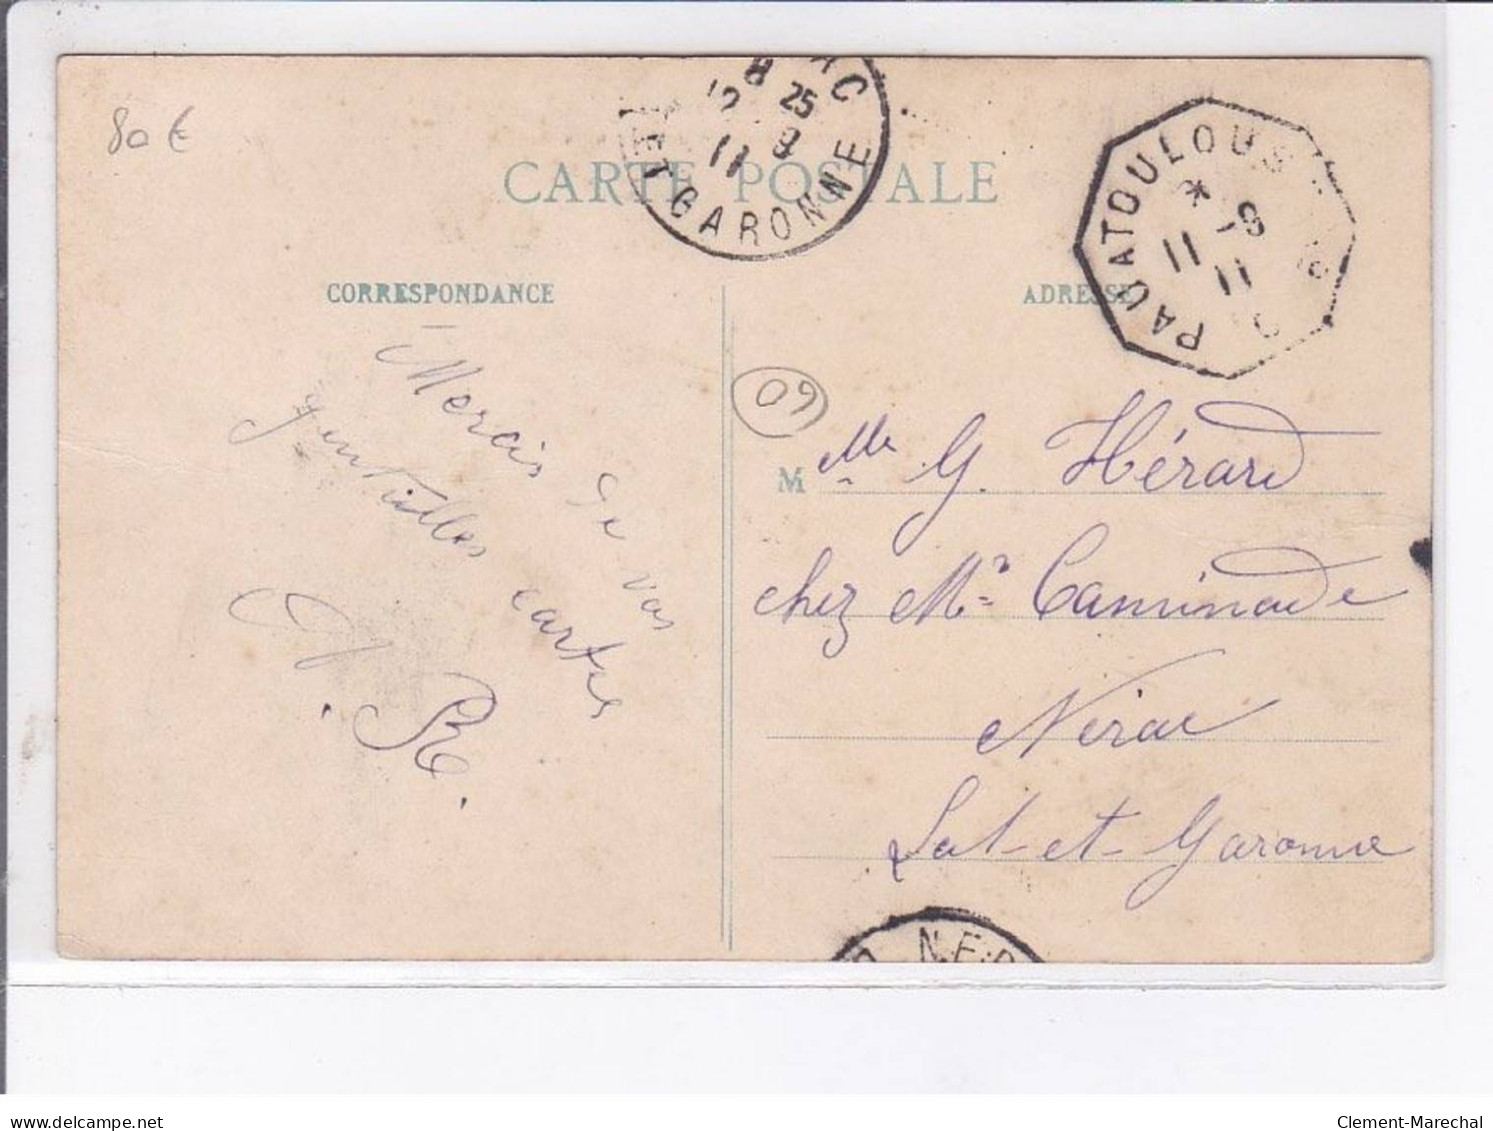 80 €
AC
12 8 25
11 9
ET GARONNE
CARTE POSTALE
PAU A TOULOUSE
*
11 -9
11
CORRESPONDANCE
ADRESSE
Mercis de vos
gentilles cartes
R.
09
M lle G. Hérard
chez Mr Caminade
Nérac
Lot-et-Garonne
NER
delcampe.net
Clement-Marechal